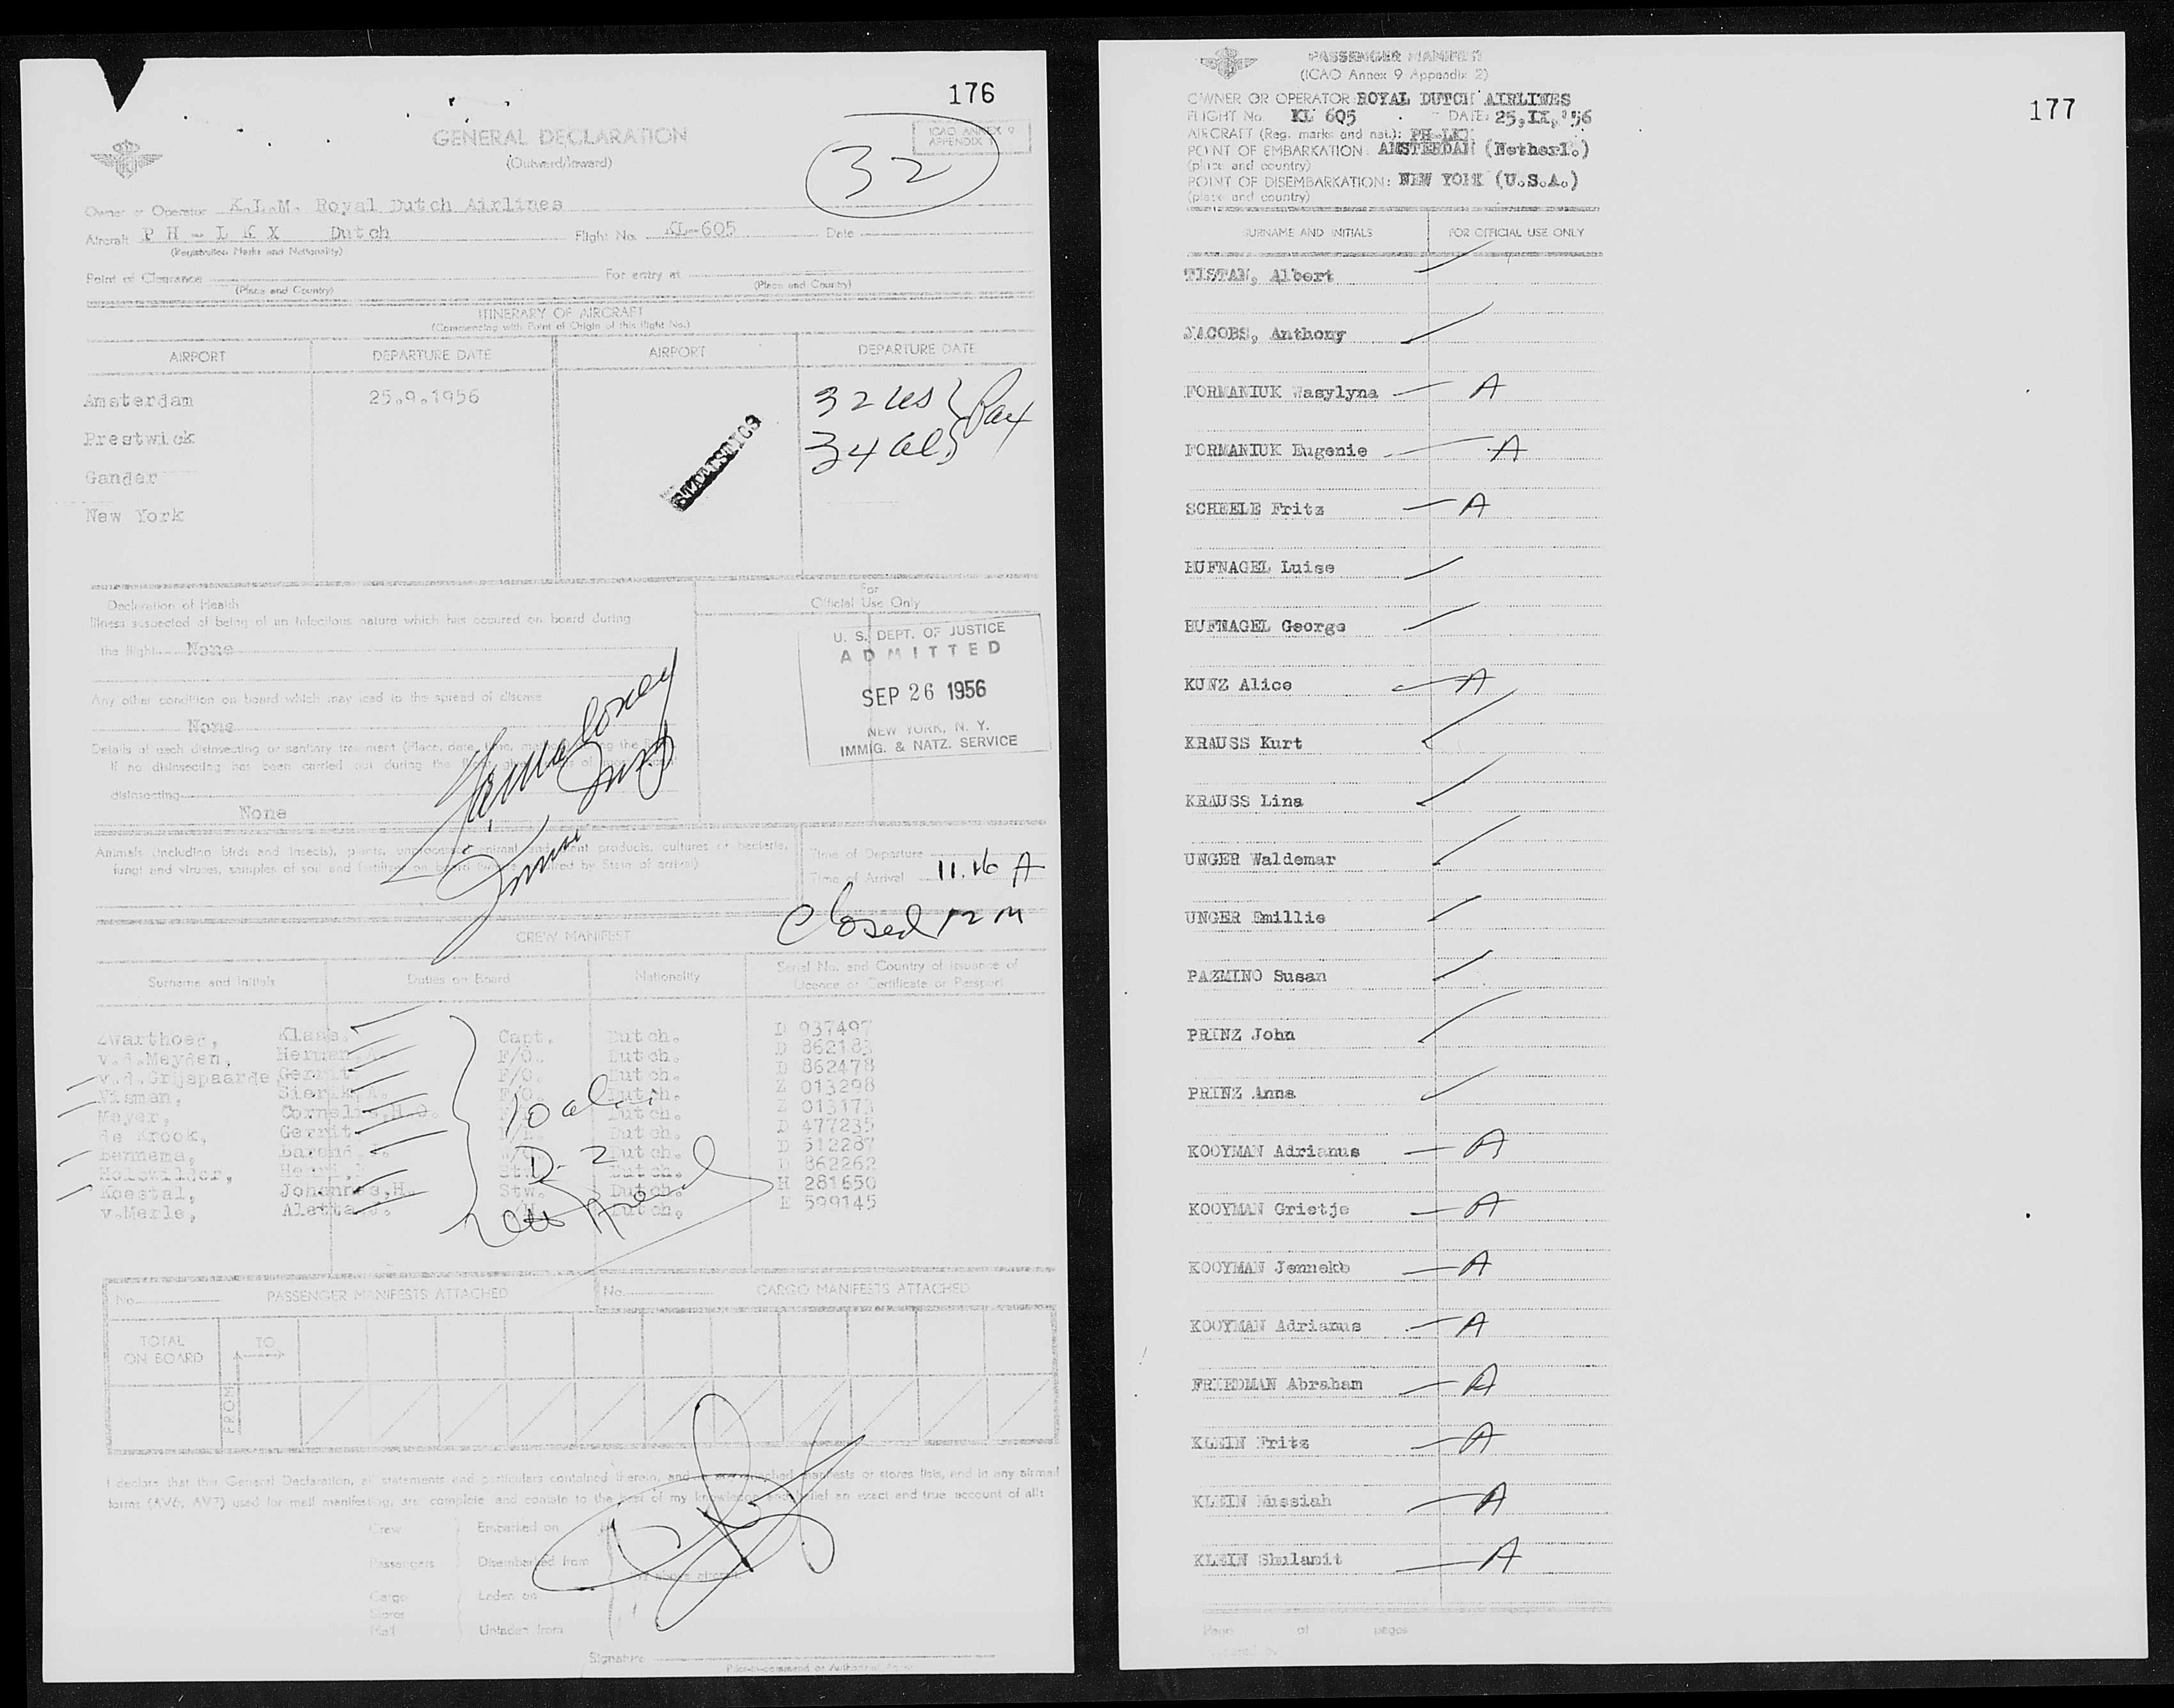 176
GENERAL DECLARATION
(Outward/Inward)
ICAO ANNEX 9
APPENDIX 1
32
Owner or Operator K.L.M. Royal Dutch Airlines
Aircraft P H - L K X Dutch Flight No. KL-605 Date
(Registration Marks and Nationality)
Point of Clearance For entry at
(Place and Country) (Place and Country)
ITINERARY OF AIRCRAFT
(Commencing with Point of Origin of this flight No.)
AIRPORT DEPARTURE DATE AIRPORT DEPARTURE DATE
Amsterdam 25.9.1956
Prestwick
Gander
New York
32 us
34 al
Pax
STATISTICS
Declaration of Health
Illness suspected of being of an infectious nature which has occured on board during
the flight None
Any other condition on board which may lead to the spread of disease
None
Details of each disinsecting or sanitary treatment (Place, date, time,
If no disinsecting has been carried out during the
disinsecting
None
For
Official Use Only
U. S. DEPT. OF JUSTICE
ADMITTED
SEP 26 1956
NEW YORK, N. Y.
IMMIG. & NATZ. SERVICE
Animals (including birds and insects), plants, unprocessed animal and plant products, cultures or bacteria,
fungi and viruses, samples of soil and by State of arrival)
Time of Departure
Time of Arrival 11.16 A
Closed 12 M
CREW MANIFEST
Surname and Initials Duties on Board Nationality Serial No. and Country of Issuance of
Licence or Certificate or Passport
Zwarthoed, Klaas. Capt. Dutch. D 937497
v.d.Meyden, Herman,A. F/O. Dutch. D 862183
v.d.Grijspaarde Gerrit F/O. Dutch. D 862478
Sierk,A. F/O. Dutch. Z 013298
Meyer, Cornelis,H.J. Dutch. Z 013173
de Krook, Gerrit Dutch. D 477235
Bennema, Barend Dutch. D 512287
Henri Stw. Dutch. D 862262
Koestal, Johannes,H. Stw. Dutch. H 281650
v.Merle, Aletta Dutch. E 599145
D-2
No. PASSENGER MANIFESTS ATTACHED No. CARGO MANIFESTS ATTACHED
TOTAL
ON BOARD
TO
FROM
I declare that this General Declaration, all statements and particulars contained therein, and in any attached manifests or stores lists, and in any airmail
forms (AV6, AV7) used for mail manifesting, are complete and contain to the best of my knowledge and belief an exact and true account of all:
Crew Embarked on
Passengers Disembarked from
above aircraft
Cargo Laden on
Stores
Mail Unladen from
Signature
Pilot-in-command or Authorized Agent
177
PASSENGER MANIFEST
(ICAO Annex 9 Appendix 2)
OWNER OR OPERATOR: ROYAL DUTCH AIRLINES
FLIGHT No. KL 605 DATE: 25,IX,'56
AIRCRAFT (Reg. marks and nat.): PH-LKX
POINT OF EMBARKATION: AMSTERDAM (Netherl.)
(place and country)
POINT OF DISEMBARKATION: NEW YORK (U.S.A.)
(place and country)
SURNAME AND INITIALS FOR OFFICIAL USE ONLY
TISTAN, Albert
JACOBS, Anthony
FORMANIUK Wasylyna A
FORMANIUK Eugenie A
SCHEELE Fritz A
HUFNAGEL Luise
HUFNAGEL George
KUNZ Alice A
KRAUSS Kurt
KRAUSS Lina
UNGER Waldemar
UNGER Emillie
PAZMINO Susan
PRINZ John
PRINZ Anna
KOOYMAN Adrianus A
KOOYMAN Grietje A
KOOYMAN Jenneke A
KOOYMAN Adrianus A
FRIEDMAN Abraham A
KLEIN Fritz A
KLEIN Mussiah A
KLEIN Shulamit A
Page of pages